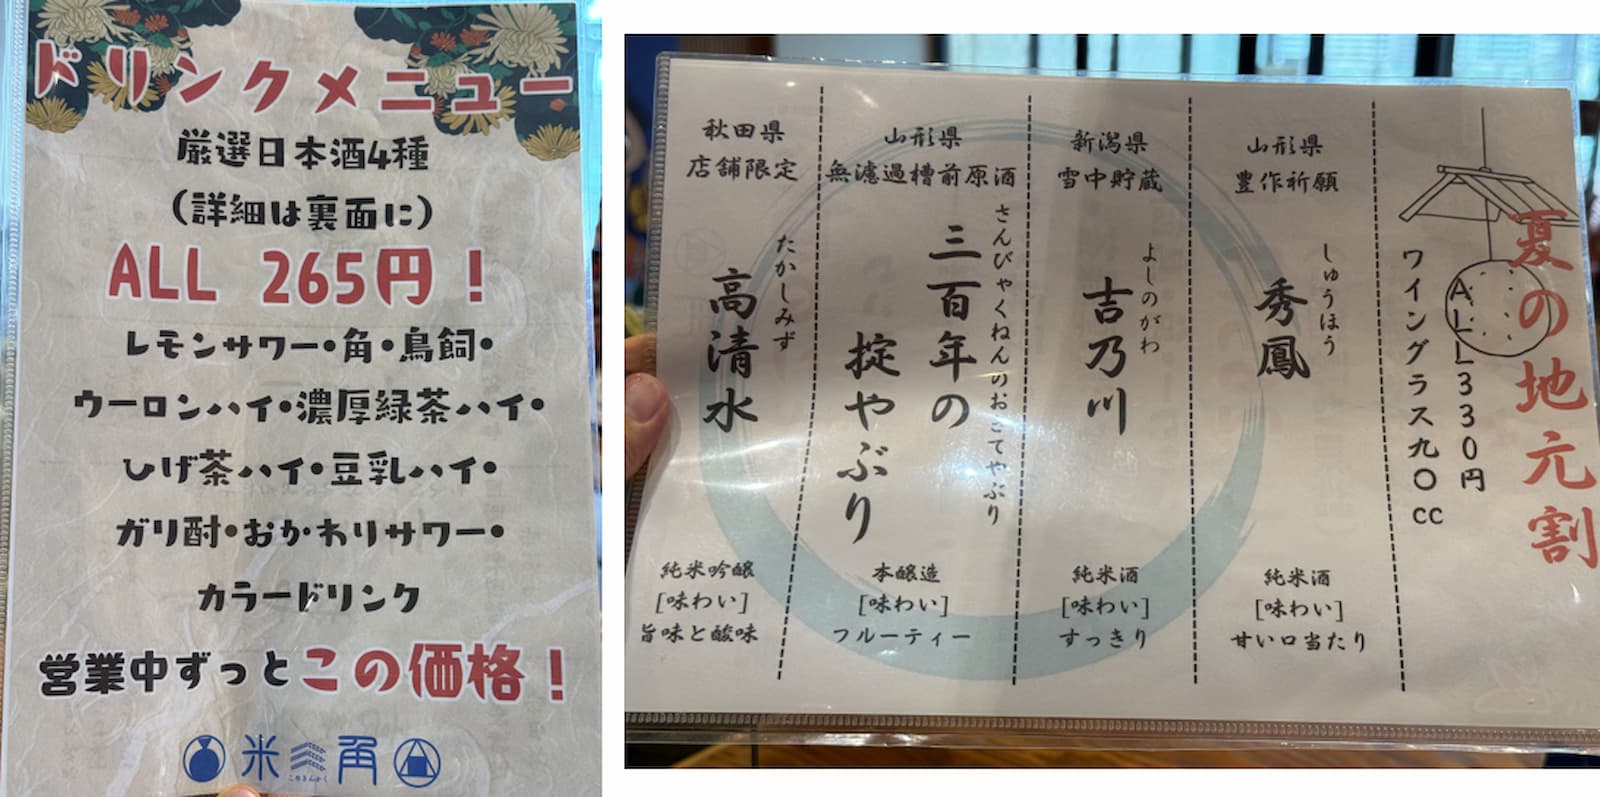 ドリンクメニュー
厳選日本酒4種
(詳細は裏面に)
ALL 265円！
レモンサワー・角・鳥飼・
ウーロンハイ・濃厚緑茶ハイ・
ひげ茶ハイ・豆乳ハイ・
ガリ酎・おかわりサワー・
カラードリンク
営業中ずっとこの価格！
米三角
こめさんかく
夏の地元割
ALL330円
ワイングラス九〇cc
山形県
豊作祈願
しゅうほう
秀鳳
純米酒
[味わい]
甘い口当たり
新潟県
雪中貯蔵
よしのがわ
吉乃川
純米酒
[味わい]
すっきり
山形県
無濾過槽前原酒
さんびゃくねんのおきてやぶり
三百年の
掟やぶり
本醸造
[味わい]
フルーティー
秋田県
店舗限定
たかしみず
高清水
純米吟醸
[味わい]
旨味と酸味